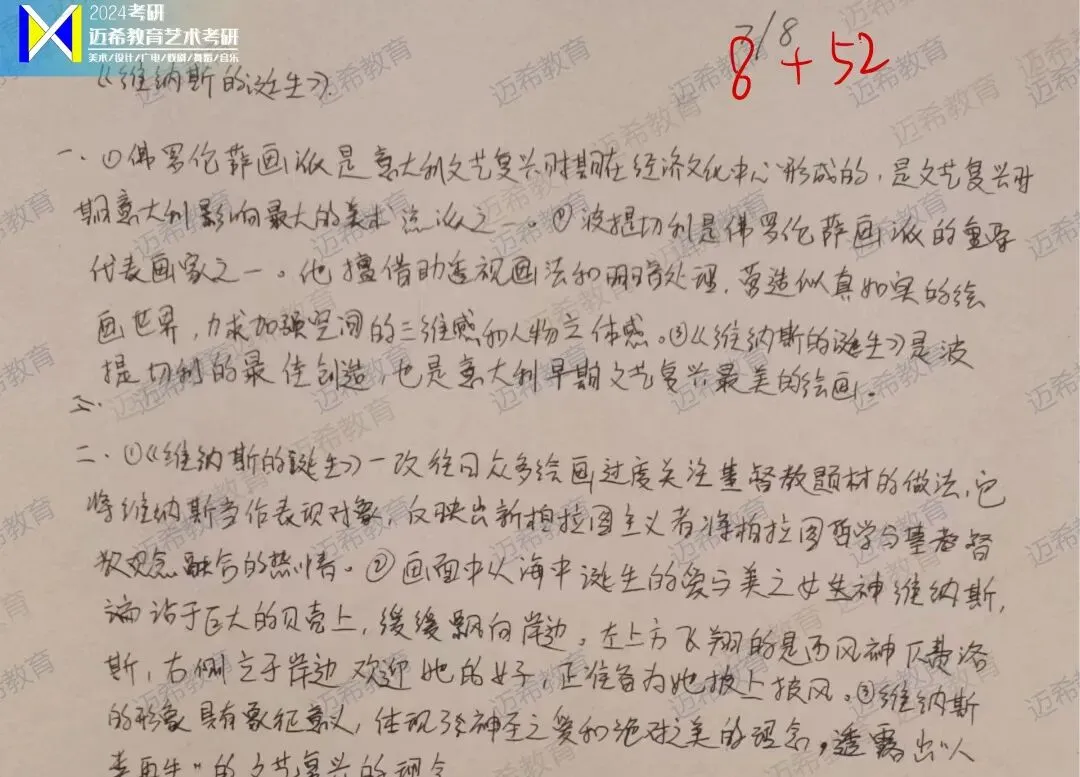 2024考研
迈希教育艺术考研
美术/设计/广电/戏剧/舞蹈/音乐
7/8
8+52
《维纳斯的诞生》
一.①佛罗伦萨画派是意大利文艺复兴时期在经济文化中心形成的,是文艺复兴时
期意大利影响最大的美术流派之一。②波提切利是佛罗伦萨画派的重要
代表画家之一。他擅借助透视画法和明暗处理,营造似真如实的绘
画世界,力求加强空间的三维感和人物立体感。③《维纳斯的诞生》是波
提切利的最佳创造,也是意大利早期文艺复兴最美的绘画。
二.①《维纳斯的诞生》一改往日众多绘画过度关注基督教题材的做法,它
将维纳斯当作表现对象,反映出新柏拉图主义者将柏拉图哲学与基督
教观念融合的热情。②画面中从海中诞生的爱与美之女神维纳斯,
站于巨大的贝壳上,缓缓飘向岸边。左上方飞翔的是西风神仄费洛
斯,右侧立于岸边欢迎她的女子,正准备为她披上披风。③维纳斯
的形象具有象征意义,体现了神圣之爱和绝对之美的理念,透露出“人
类再生”的文艺复兴的理念